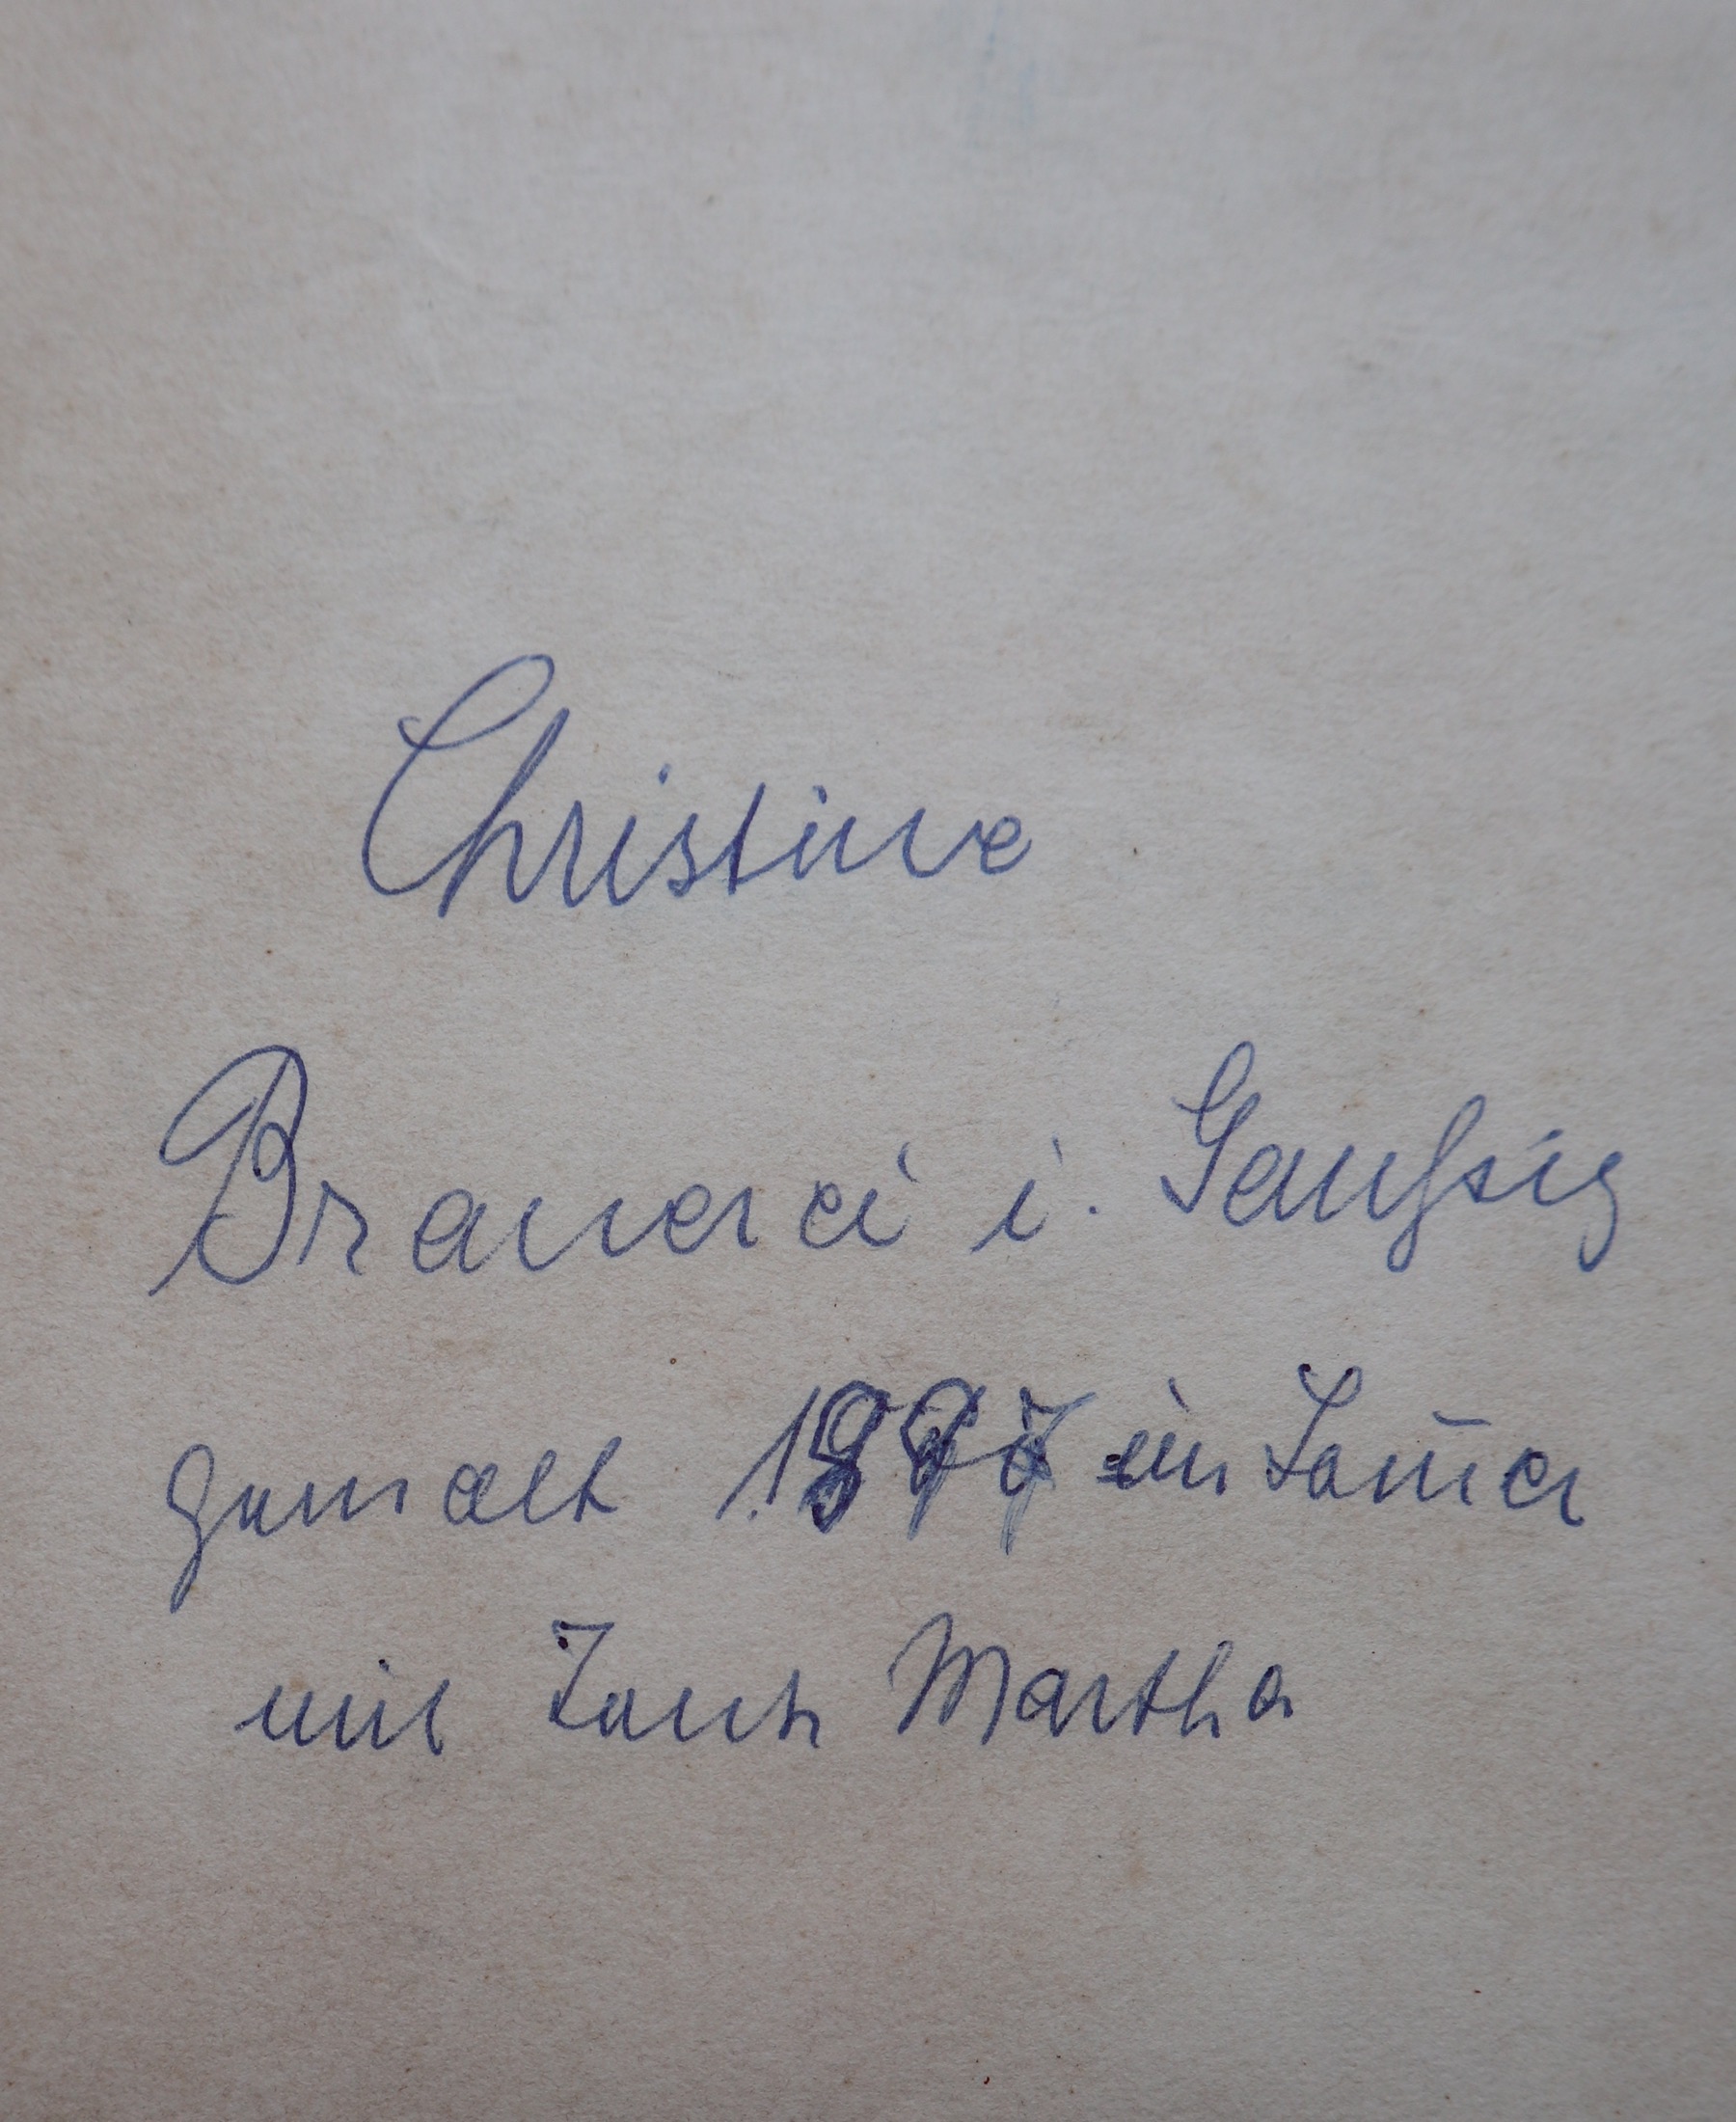 Christine
Brauerei i. Gaußig
gemalt im Som̄er
mit Tante Martha